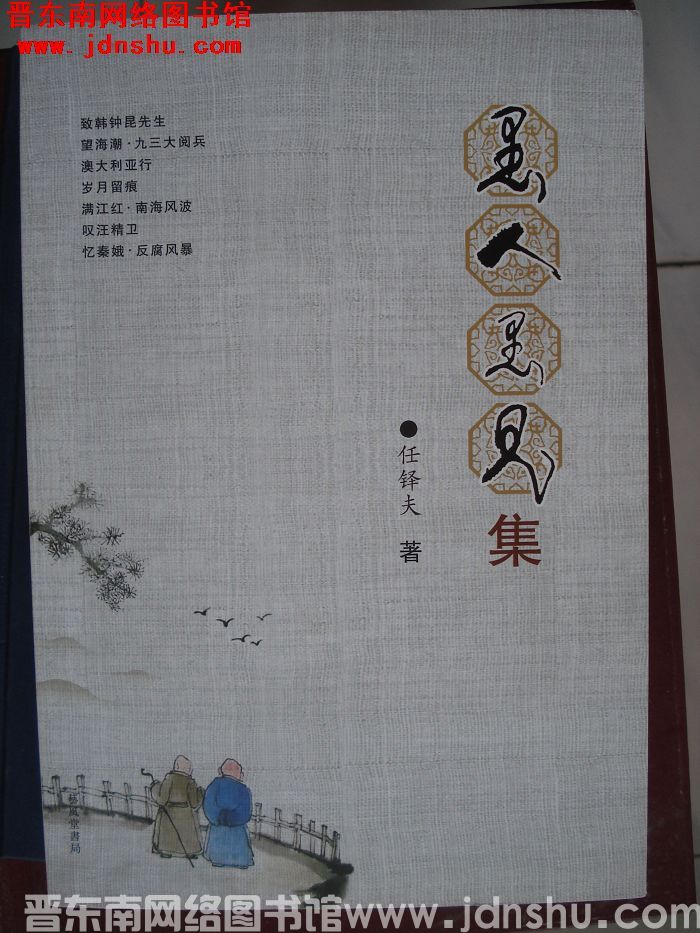 晋东南网络图书馆
www.jdnshu.com
致韩钟昆先生
望海潮·九三大阅兵
澳大利亚行
岁月留痕
满江红·南海风波
叹汪精卫
忆秦娥·反腐风暴
愚人愚见集
●任铎夫 著
藝風堂書局
晋东南网络图书馆www.jdnshu.com